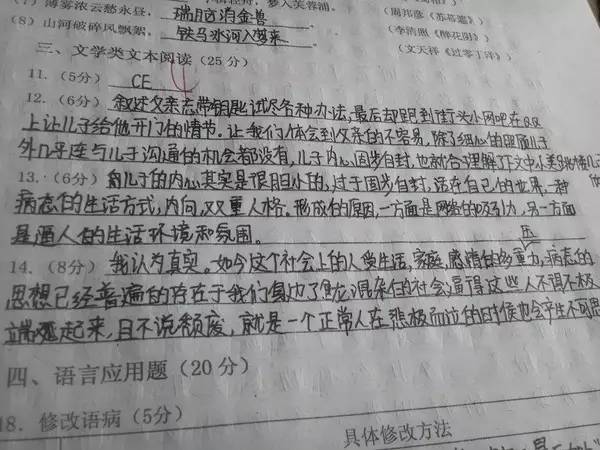 (7) 薄雾浓云愁永昼, 瑞脑消金兽 (李清照《醉花阴》)
(8) 山河破碎风飘絮, 铁马冰河入梦来 (文天祥《过零丁洋》)
三、文学类文本阅读(25分)
11.(5分) CE
12.(6分) 叙述父亲忘带钥匙试尽各种办法,最后却跑到街头小网吧在QQ
上让儿子给他开门的情节。让我们体会到父亲的不容易,除了细心的照顾儿子
外几乎连与儿子沟通的机会都没有,儿子内心固步自封,也就
13.(6分) 儿子的内心其实是很胆小的,过于固步自封,活在自己的世界,一种
病态的生活方式,内向,双重人格。形成的原因,一方面是网络的吸引力,另一方面
是逼人的生活环境和氛围。
14.(8分) 我认为真实。如今这个社会上的人受生活,家庭,感情的多重压力,病态的
思想已经普遍的存在于我们身边了,混杂的社会逼得这些人不得不极
端起来,且不说颓废,就是一个正常人在悲极而泣的时候也会产生不可思
四、语言应用题(20分)
18. 修改语病(5分)
具体修改方法